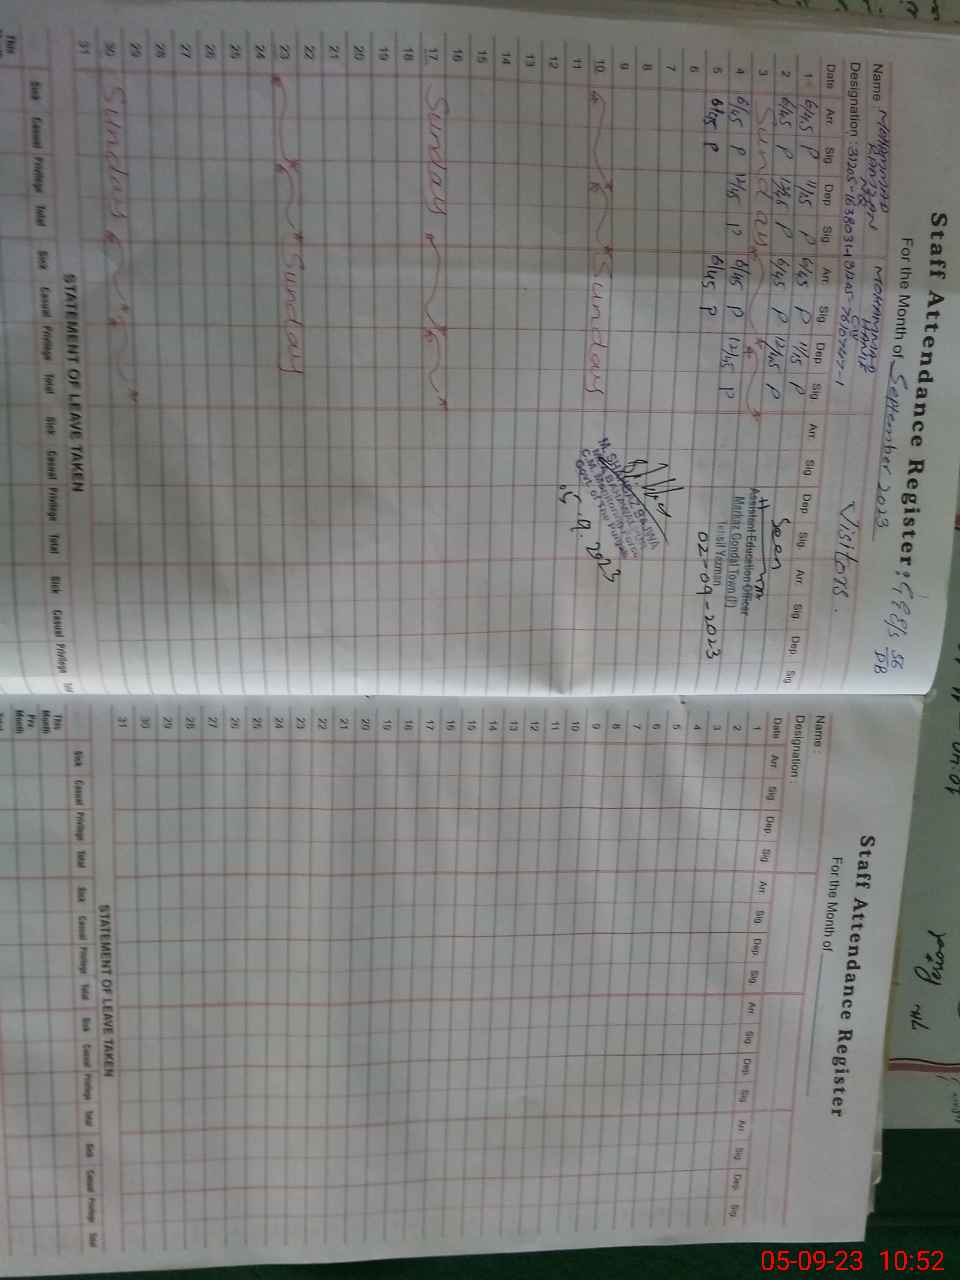 Staff Attendance Register : GGE/s 56/DB
For the Month of September 2023
Name MOHAMMAD RAMZAN MOHAMMAD HANIF Visitors.
Designation :
Date Arr. Sig Dep. Sig Arr. Sig Dep. Sig Arr. Sig Dep. Sig. Arr. Sig. Dep. Sig.
1 6/45 P 1/15 P 6/45 P 1/15 P
2 6/45 P 12/45 P 6/45 P 12/45 P Seen
3 Sunday Assistant Education Officer
4 6/45 P 12/45 P 6/45 P 12/45 P Markaz Gondal Town (P)
5 6/45 P 6/45 P Tehsil Yazman
6 02-09-2023
7
8
9
10 Sunday
11 5.9.2023
12
13
14
15
16
17 Sunday
18
19
20
21
22
23 Sunday
24
25
26
27
28
29
30 Sunday
31
STATEMENT OF LEAVE TAKEN
Sick Casual Privilege Total Sick Casual Privilege Total Sick Casual Privilege Total Sick Casual Privilege
This
Staff Attendance Register
For the Month of
Name :
Designation :
Date Arr. Sig. Dep. Sig. Arr. Sig. Dep. Sig. Arr. Sig. Dep. Sig. Arr. Sig. Dep. Sig.
1
2
3
4
5
6
7
8
9
10
11
12
13
14
15
16
17
18
19
20
21
22
23
24
25
26
27
28
29
30
31
STATEMENT OF LEAVE TAKEN
Sick Casual Privilege Total Sick Casual Privilege Total Sick Casual Privilege Total Sick Casual Privilege Total
This Month
Pre Month
05-09-23 10:52